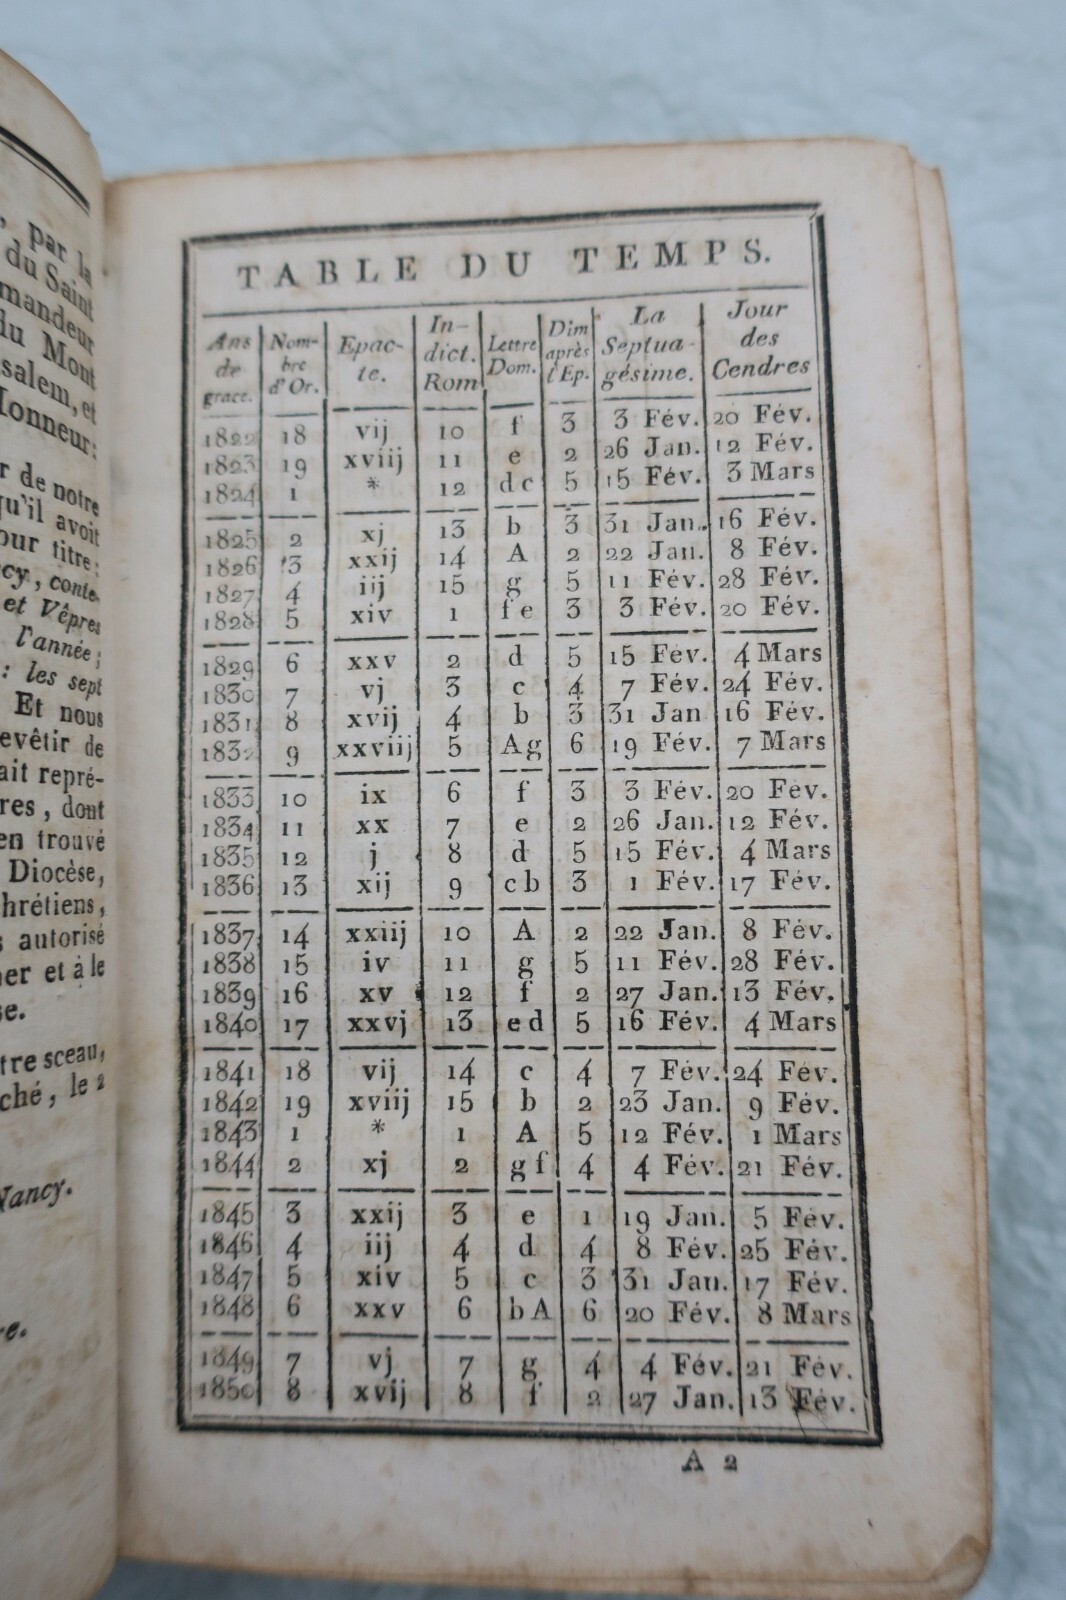 , par la
du Saint
mandeur
du Mont
salem, et
Honneur:
r de notre
qu'il avoit
our titre:
cy, conte-
et Vêpres
l'année;
: les sept
Et nous
evêtir de
ait repré-
res, dont
en trouvé
Diocèse,
hrétiens,
s autorisé
ner et à le
se.
tre sceau,
ché, le 2
Nancy.
re.
TABLE DU TEMPS.
Ans de grace. Nom-bre d'Or. Epac-te. In-dict. Rom Lettre Dom. Dim après l'Ep. La Septua-gésime. Jour des Cendres
1822 18 vij 10 f 3 3 Fév. 20 Fév.
1823 19 xviij 11 e 2 26 Jan. 12 Fév.
1824 1 * 12 dc 5 15 Fév. 3 Mars
1825 2 xj 13 b 3 31 Jan. 16 Fév.
1826 3 xxij 14 A 2 22 Jan. 8 Fév.
1827 4 iij 15 g 5 11 Fév. 28 Fév.
1828 5 xiv 1 fe 3 3 Fév. 20 Fév.
1829 6 xxv 2 d 5 15 Fév. 4 Mars
1830 7 vj 3 c 4 7 Fév. 24 Fév.
1831 8 xvij 4 b 3 31 Jan 16 Fév.
1832 9 xxviij 5 Ag 6 19 Fév. 7 Mars
1833 10 ix 6 f 3 3 Fév. 20 Fév.
1834 11 xx 7 e 2 26 Jan. 12 Fév.
1835 12 j 8 d 5 15 Fév. 4 Mars
1836 13 xij 9 cb 3 1 Fév. 17 Fév.
1837 14 xxiij 10 A 2 22 Jan. 8 Fév.
1838 15 iv 11 g 5 11 Fév. 28 Fév.
1839 16 xv 12 f 2 27 Jan. 13 Fév.
1840 17 xxvj 13 ed 5 16 Fév. 4 Mars
1841 18 vij 14 c 4 7 Fév. 24 Fév.
1842 19 xviij 15 b 2 23 Jan. 9 Fév.
1843 1 * 1 A 5 12 Fév. 1 Mars
1844 2 xj 2 gf 4 4 Fév. 21 Fév.
1845 3 xxij 3 e 1 19 Jan. 5 Fév.
1846 4 iij 4 d 4 8 Fév. 25 Fév.
1847 5 xiv 5 c 3 31 Jan. 17 Fév.
1848 6 xxv 6 bA 6 20 Fév. 8 Mars
1849 7 vj 7 g 4 4 Fév. 21 Fév.
1850 8 xvij 8 f 2 27 Jan. 13 Fév.
A 2